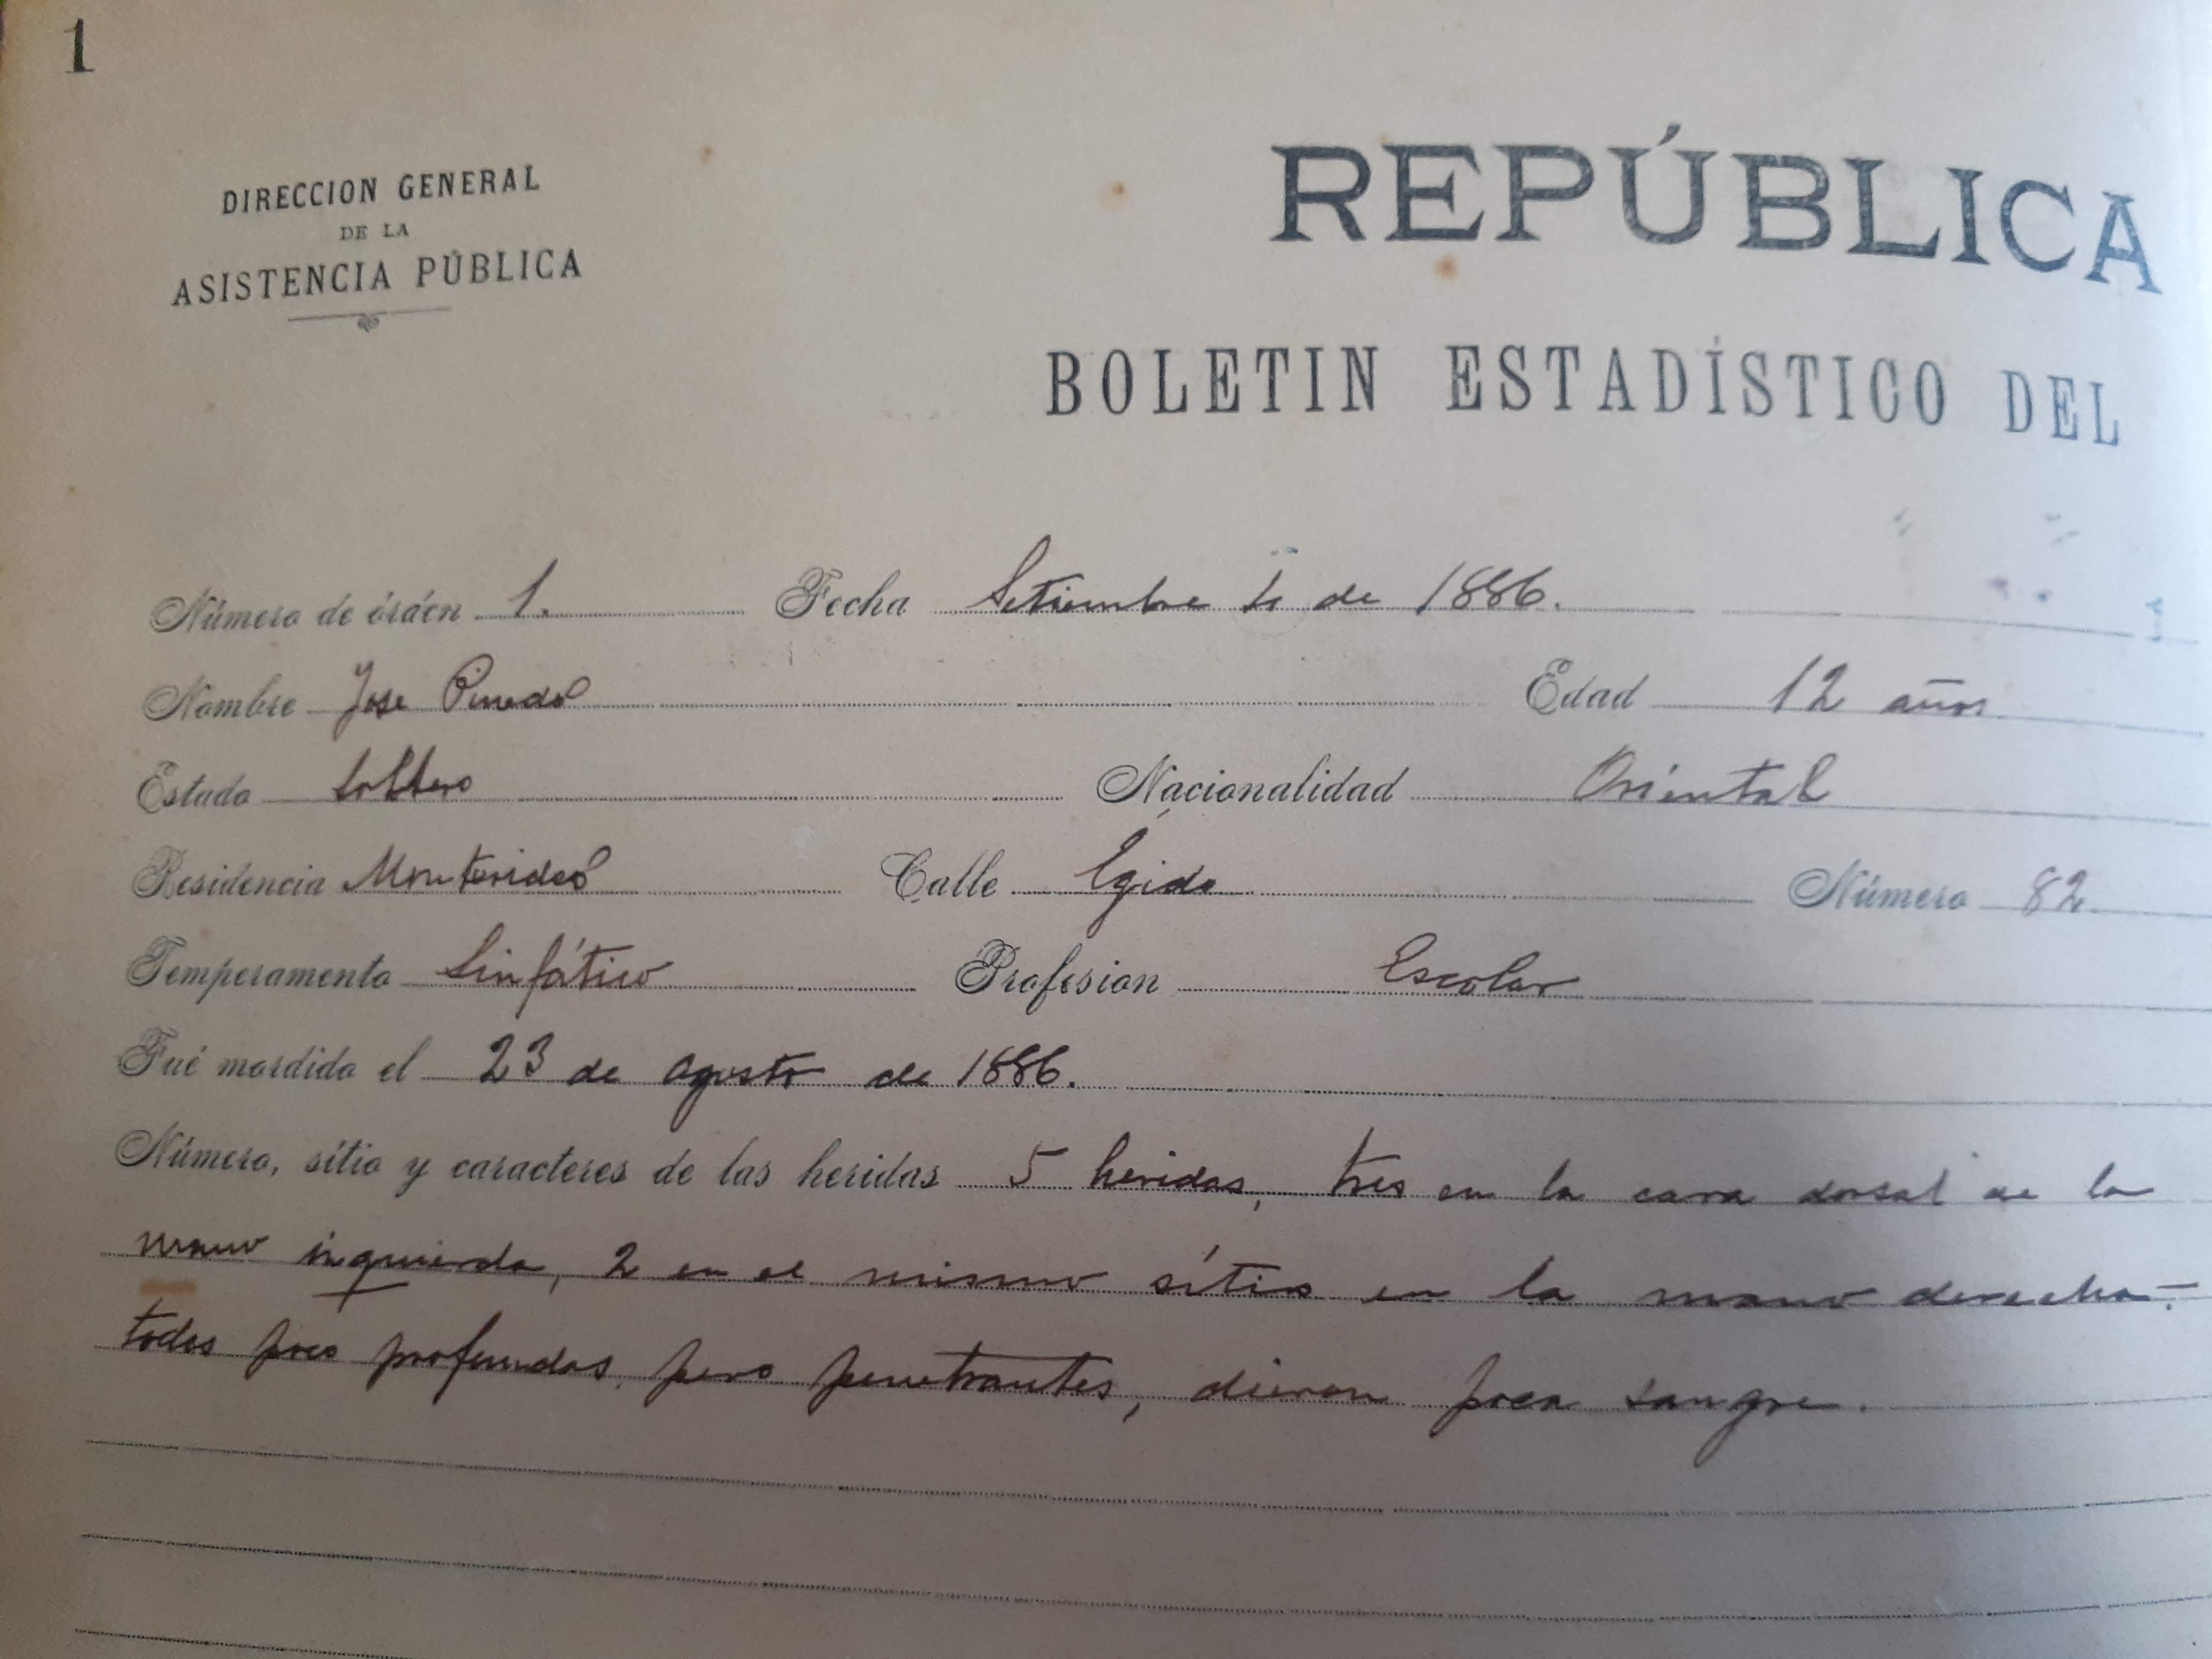 1
DIRECCION GENERAL
DE LA
ASISTENCIA PÚBLICA
REPÚBLICA
BOLETIN ESTADÍSTICO DEL
Número de órden 1. Fecha Setiembre 4 de 1886.
Nombre Jose Pinedo Edad 12 años
Estado Soltero Nacionalidad Oriental
Residencia Montevideo Calle Egido Número 82
Temperamento Linfático Profesion Escolar
Fué mordido el 23 de agosto de 1886.
Número, sitio y caracteres de las heridas 5 heridas, tres en la cara dorsal de la
mano izquierda, 2 en el mismo sítio en la mano derecha.—
todas poco profundas, pero penetrantes, dieron poca sangre.